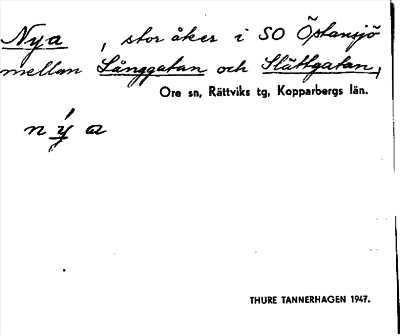 Nya, stor åker i SO Östansjö
mellan Långgatan och Slättgatan,
Ore sn, Rättviks tg, Kopparbergs län.
ný a
THURE TANNERHAGEN 1947.